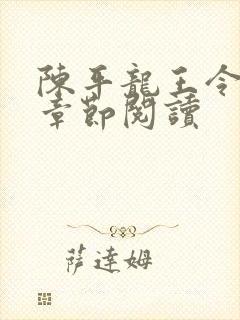 陳平龍王令
章節閱讀
薩達姆